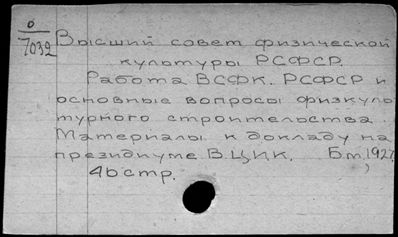 0
7032
Высший совет физической
культуры РСФСР.
Работа ВСФК. РСФСР и
основные вопросы физкуль
турного строительства.
Материалы к докладу на
президиуме В.ЦИК. Б.м, 1927.
46 стр.